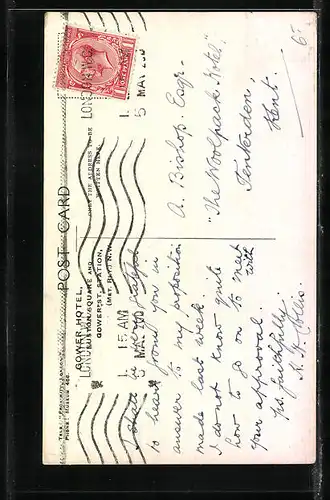 POST CARD
GOWER HOTEL,
EUSTON SQUARE AND
GOWER ST. STATION,
(MET. RLY.) N.W.
ONLY THE ADDRESS TO BE
WRITTEN HERE.
LONDON
1. 15 AM
5 MAY 20
I shall be very grateful
to hear from you in
answer to my proposition
made last week.
I do not know quite
how to go on to meet with
your approval.
Yrs. faithfully
A. Bishop. Esqr.
"The Woolpack Hotel".
Tenterden,
Kent.
6-